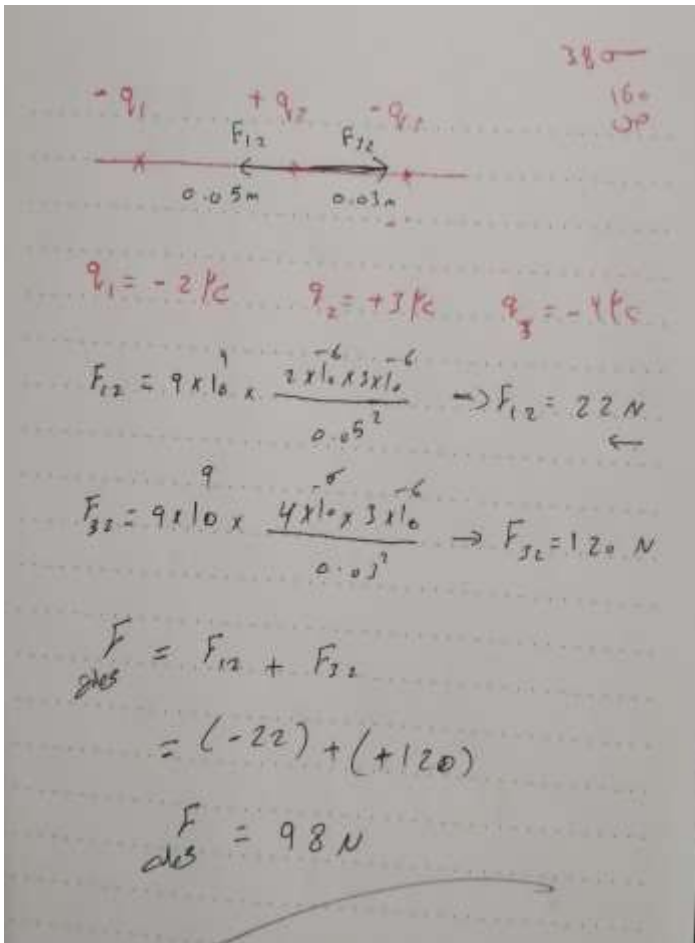 38
160
- q₁ + q₂ - q₃
F₁₂ F₃₂
0.05m 0.03m
q₁ = - 2 μc q₂ = +3 μc q₃ = - 4 μc
F₁₂ = 9 x 10⁹ x (2 x 10⁻⁶ x 3 x 10⁻⁶) / 0.05² → F₁₂ = 22 N
←
F₃₂ = 9 x 10⁹ x (4 x 10⁻⁶ x 3 x 10⁻⁶) / 0.03² → F₃₂ = 120 N
F = F₁₂ + F₃₂
= (-22) + (+120)
F = 98 N